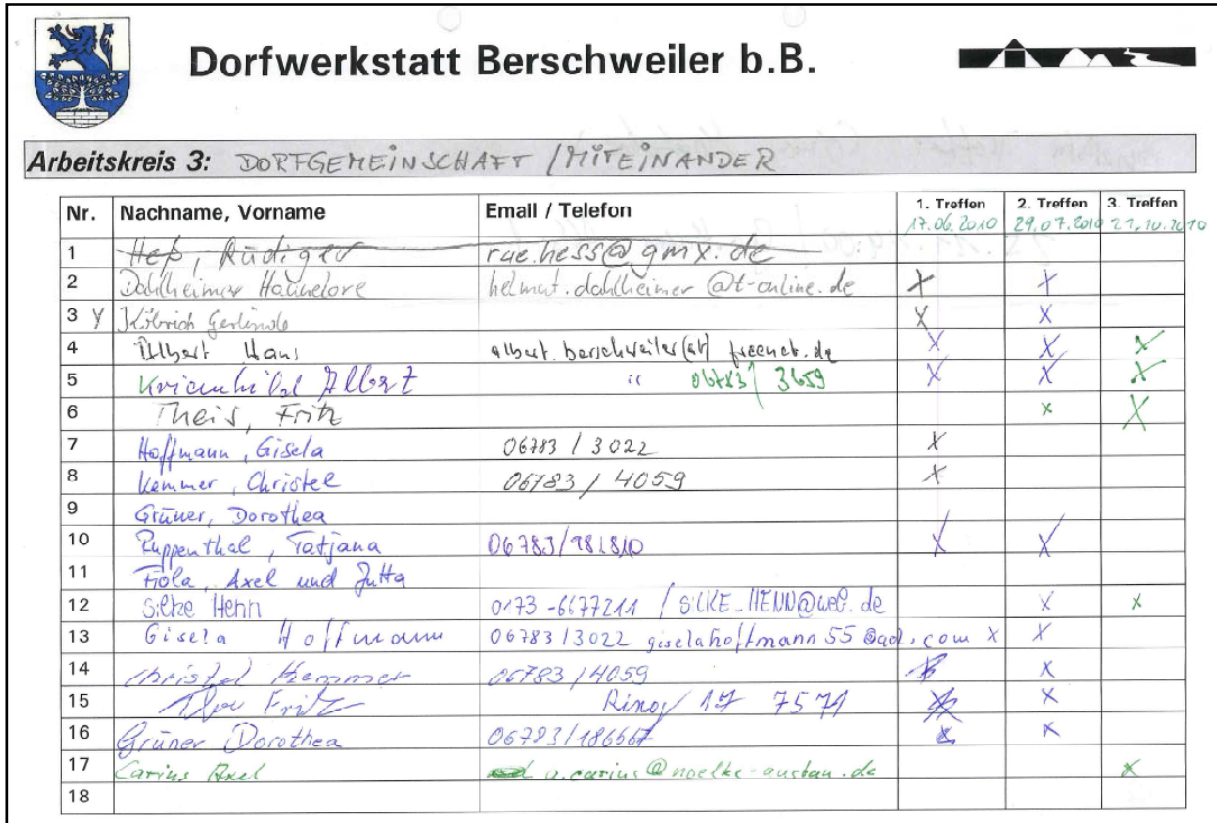 Dorfwerkstatt Berschweiler b.B.
Arbeitskreis 3: DORFGEMEINSCHAFT / MITEINANDER
Nr. Nachname, Vorname Email / Telefon 1. Treffen 2. Treffen 3. Treffen
17.06.2010 29.07.2010 21.10.2010
1 Heß, Rüdiger rue.hess@gmx.de
2 Dahlheimer Hannelore helmut.dahlheimer@t-online.de X X
3 Y Köbrich Gerlinde X X
4 Albert Hans albert.berschweiler(at) freenet.de X X X
5 Kriemhilde Albert " 06783/3659 X X X
6 Theis, Fritz X X
7 Hoffmann, Gisela 06783 / 3022 X
8 Kemmer, Christel 06783 / 4059 X
9 Grüner, Dorothea
10 Ruppenthal, Tatjana 06783/981810 X X
11 Fiola, Axel und Jutta
12 Silke Henn 0173-6677211 / SILKE_HENN@web.de X X
13 Gisela Hoffmann 06783/3022 giselahoffmann55@aol.com X X
14 Christel Kemmer 06783/4059 X
15 Fritz Ring 17 7571 X
16 Grüner Dorothea 06783/186667 X
17 Carius Axel a.carius@noelke-ausbau.de X
18